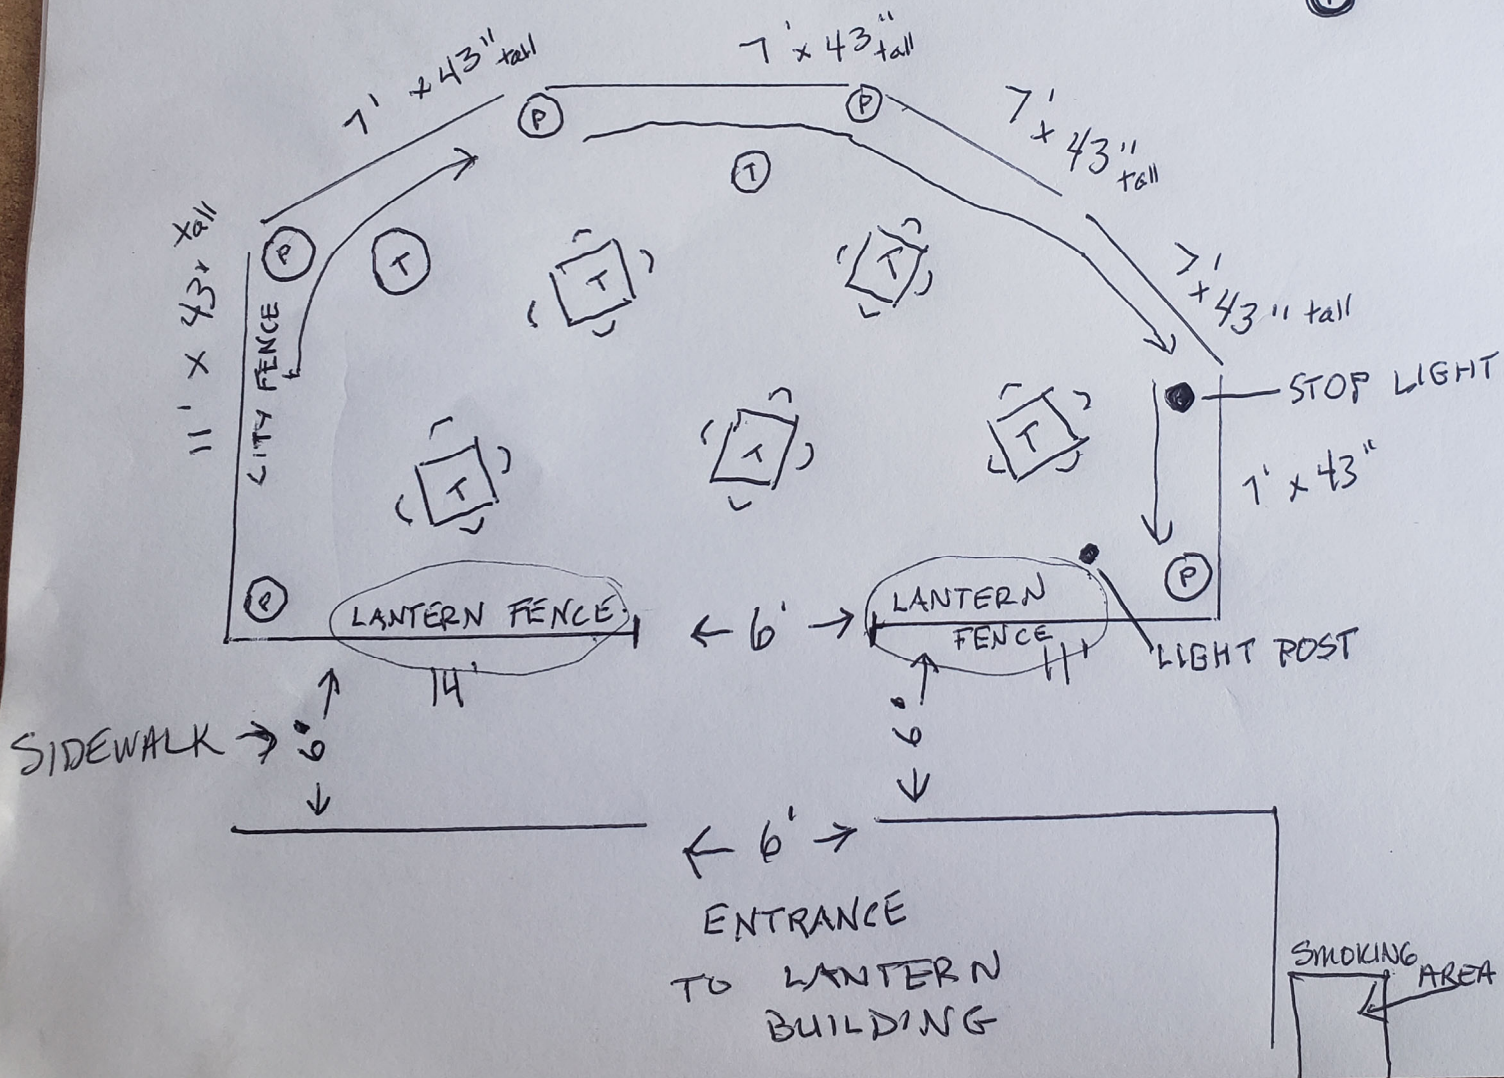 7' x 43" tall
7' x 43" tall
7' x 43" tall
7' x 43" tall
11' x 43" tall
CITY FENCE
P
P
P
P
P
T
T
T
T
T
T
T
STOP LIGHT
7' x 43"
LANTERN FENCE
14'
← 6' →
LANTERN
FENCE
11'
LIGHT POST
SIDEWALK →
6'
6'
← 6' →
ENTRANCE
TO LANTERN
BUILDING
SMOKING
AREA